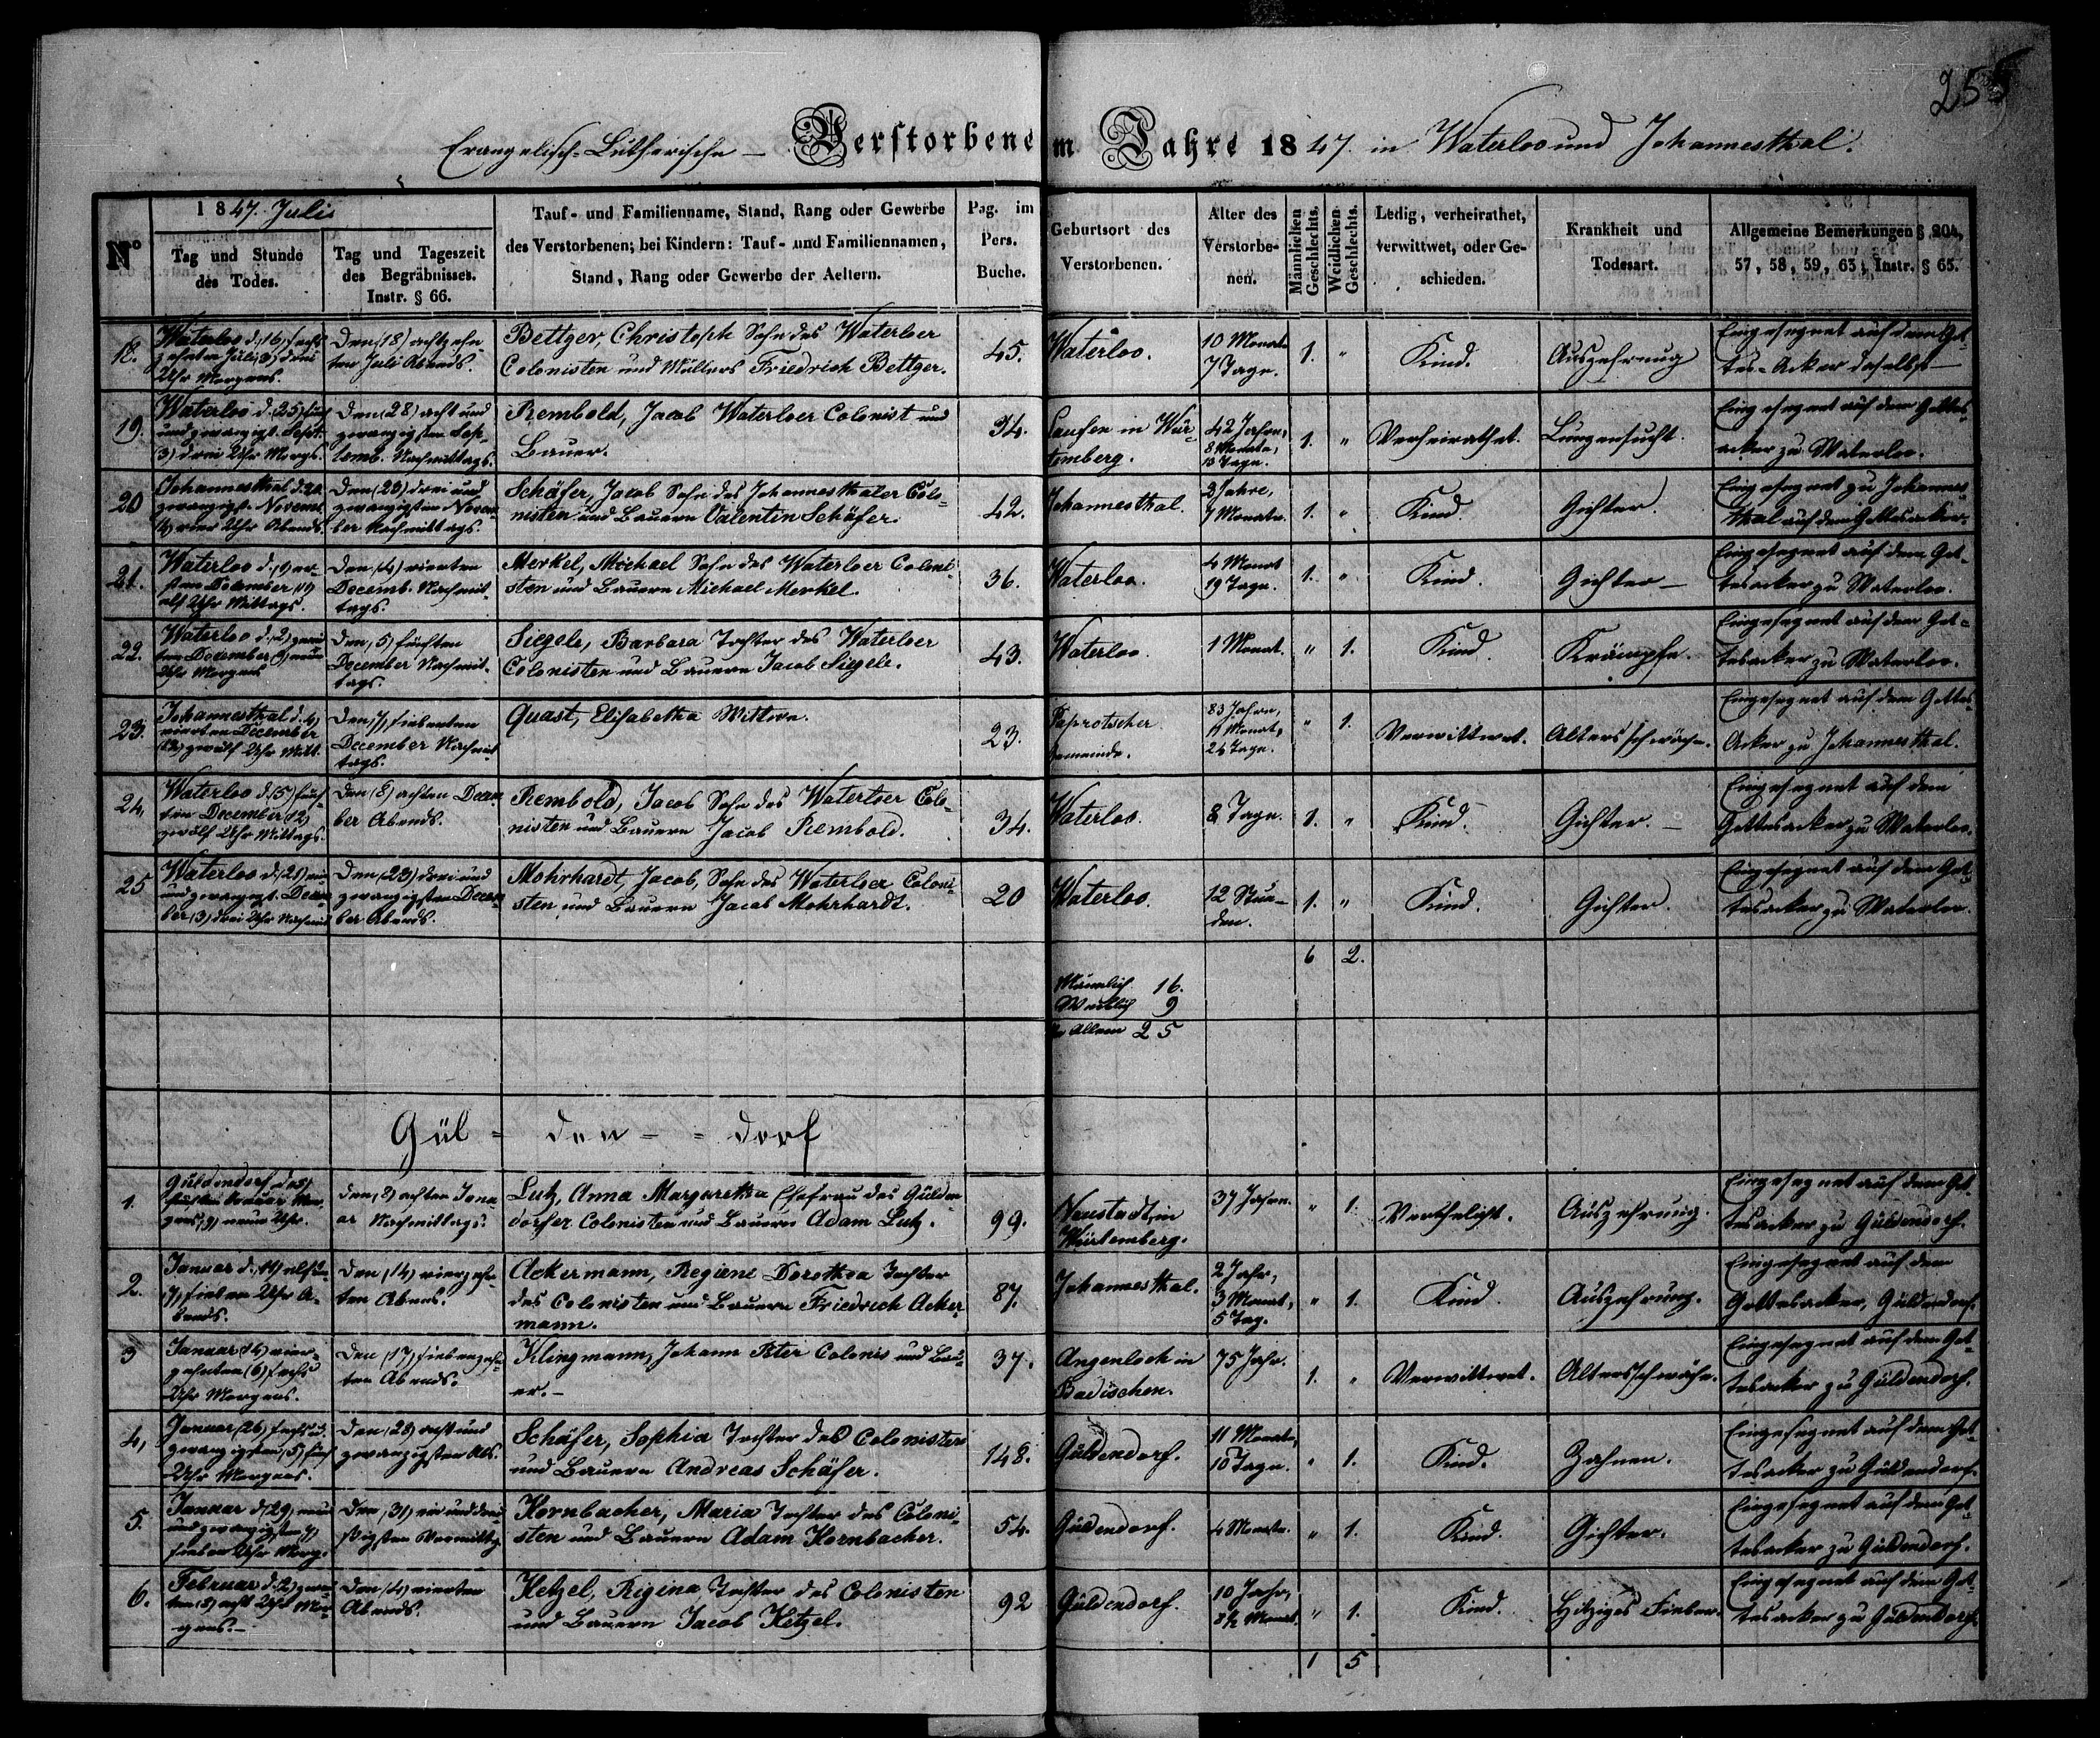 255
Evangelisch-Lutherische – Verstorbene im Jahre 1847. in Waterloo und Johannesthal.
N°
1847. Julii
Tag und Stunde
des Todes.
Tag und Tageszeit
des Begräbnisses.
Instr. § 66.
Tauf- und Familienname, Stand, Rang oder Gewerbe
des Verstorbenen; bei Kindern: Tauf- und Familiennamen,
Stand, Rang oder Gewerbe der Aeltern.
Pag. im
Pers.
Buche.
Geburtsort des
Verstorbenen.
Alter des
Verstorbe-
nen.
Männlichen
Geschlechts.
Weidlichen
Geschlechts.
Ledig, verheirathet,
verwittwet, oder Ge-
schieden.
Krankheit und
Todesart.
Allgemeine Bemerkungen § 204,
57, 58, 59, 63; Instr. § 65.
18.
Waterloo d. (16) sech-
zehnten Julii (3) drei
Uhr Morgens.
Den (18) achtzehn-
ten Juli Abends.
Bettger, Christoph Sohn des Waterloer
Colonisten und Müllers Friedrich Bettger.
45.
Waterloo.
10 Monate
7 Tage.
1.
"
Kind.
Auszehrung
Eingesegnet auf dem Got-
tes-Acker daselbst
19.
Waterloo d. (25) fünf
und zwanzigt. Sept.
(3) drei Uhr Morgs.
Den (28) acht und
zwanzigsten Sep-
temb. Nachmittags.
Rembold, Jacob Waterloer Colonist und
Bauer.
34.
Laufen in Wür-
temberg.
42 Jahre,
8 Monate,
13 Tage.
1.
"
Verheirathet.
Lungensucht.
Eingesegnet auf dem Gottes-
acker zu Waterloo.
20
Johannesthal d. 20
zwanzigst. Novemb.
(4) vier Uhr Abends.
Den (23) drei und
zwanzigsten Novem-
ber Nachmittags.
Schäfer, Jacob Sohn des Johannesthaler Colo-
nisten und Bauern Valentin Schäfer.
42.
Johannesthal.
2 Jahre,
7 Monate.
1.
"
Kind.
Gichter.
Eingesegnet zu Johannes-
thal auf dem Gottesacker.
21.
Waterloo d. (1) er-
sten December (11)
elf Uhr Mittags.
Den (4) vierten
Decemb. Nachmit-
tags.
Merkel, Michael Sohn des Waterloer Coloni-
sten und Bauern Michael Merkel.
36.
Waterloo.
4 Monat
19 Tage.
1.
"
Kind.
Gichter –
Eingesegnet auf dem Got-
tesacker zu Waterloo.
22.
Waterloo d. (2) zwei-
ten December (9) neun
Uhr Morgens
Den (5) fünften
December Nachmit-
tags.
Siegele, Barbara Tochter des Waterloer
Colonisten und Bauern Jacob Siegele.
43.
Waterloo
1 Monat.
"
1.
Kind.
Krämpfe.
Eingesegnet auf dem Got-
tesacker zu Waterloo.
23.
Johannesthal d. 4)
vierten December
(12) zwölf Uhr Mitt.
Den (7) siebenten
December Nachmit-
tags.
Quast, Elisabetha Wittwe.
23.
Paprotscher
Gemeinde.
83 Jahre,
11 Monat,
24 Tage.
"
1.
Verwittwet.
Altersschwäche.
Eingesegnet auf dem Gottes-
Acker zu Johannesthal.
24,
Waterloo d. (5) fünf-
ten December (12)
zwölf Uhr Mittags.
Den (8) achten Decem-
ber Abends.
Rembold, Jacob Sohn des Waterloer Colo-
nisten und Bauern Jacob Rembold.
34.
Waterloo.
8 Tage.
1.
"
Kind.
Gichter. –
Eingesegnet auf dem
Gottesacker zu Waterloo.
25
Waterloo d. (21) ein
und zwanzigt. Decem-
ber (3) drei Uhr Nachmit
Den (23) drei und
zwanzigsten Decem-
ber Abends.
Mohrhardt, Jacob, Sohn des Waterloer Coloni-
sten und Bauern Jacob Mohrhardt.
20
Waterloo.
12 Stun-
den.
1.
"
Kind.
Gichter.
Eingesegnet auf dem Got-
tesacker zu Waterloo.
6
2.
Männlich 16.
Weiblich 9
In Allem 25
Gül = den = = dorf
1.
Güldendorf d. 5)
fünften Januar Mor-
gens, 9) neun Uhr.
Den (8) achten Janu-
ar Nachmittags.
Lutz, Anna Margaretha Ehefrau des Gülden-
dorfer Colonisten und Bauern Adam Lutz.
99.
Neustadt, in
Würtemberg.
37 Jahre.
"
1.
Verehelicht.
Auszehrung.
Eingesegnet auf dem Got-
tesacker zu Güldendorf.
2.
Januar d. (11) elften
(7) sieben Uhr A-
bends.
Den (14) vierzehn-
ten Abends.
Ackermann, Regiene Dorothea Tochter
des Colonisten und Bauern Friedrich Acker-
mann.
87.
Johannesthal.
2 Jahr,
3 Monat,
5 Tag.
"
1.
Kind.
Auszehrung.
Eingesegnet auf dem
Gottesacker, Güldendorf.
3
Januar (14) vier-
zehnten (6) sechs
Uhr Morgens.
Den (17) siebenzehn-
ten Abends.
Klingmann, Johann Peter Colonis und Bau-
er. –
37.
Angenloch in
Badischen.
75 Jahr.
1.
"
Verwittwet.
Altersschwäche.
Eingesegnet auf dem Got-
tesacker zu Güldendorf.
4,
Januar (26) sechs u.
zwanzigsten (5) fünf
Uhr Morgens.
Den (28) acht und
zwanzigsten Abs.
Schäfer, Sophia Tochter des Colonisten
und Bauern Andreas Schäfer.
148.
Güldendorf.
11 Monate,
10 Tage.
"
1.
Kind.
Zahnen.
Eingesegnet auf dem Got-
tesacker zu Güldendorf.
5.
Januar d. (29) neun
und zwanzigsten 7)
sieben Uhr Morg.
Den (31) ein und drei-
ßigsten Vormittg.
Kornbacher, Maria Tochter des Coloni-
sten und Bauern Adam Kornbacher.
54.
Güldendorf.
4 Monate.
"
1.
Kind.
Gichter.
Eingesegnet auf dem Got-
tesacker zu Güldendorf.
6.
Februar d. (2) zwei-
ten (8) acht Uhr Mor-
gens. –
Den (4) vierten
Abends.
Ketzel, Rigina Tochter des Colonisten
und Bauern Jacob Ketzel.
92
Güldendorf.
10 Jahr,
8½ Monat.
"
1.
Kind.
Hitziges Fieber.
Eingesegnet auf dem Got-
tesacker zu Güldendorf.
1
5